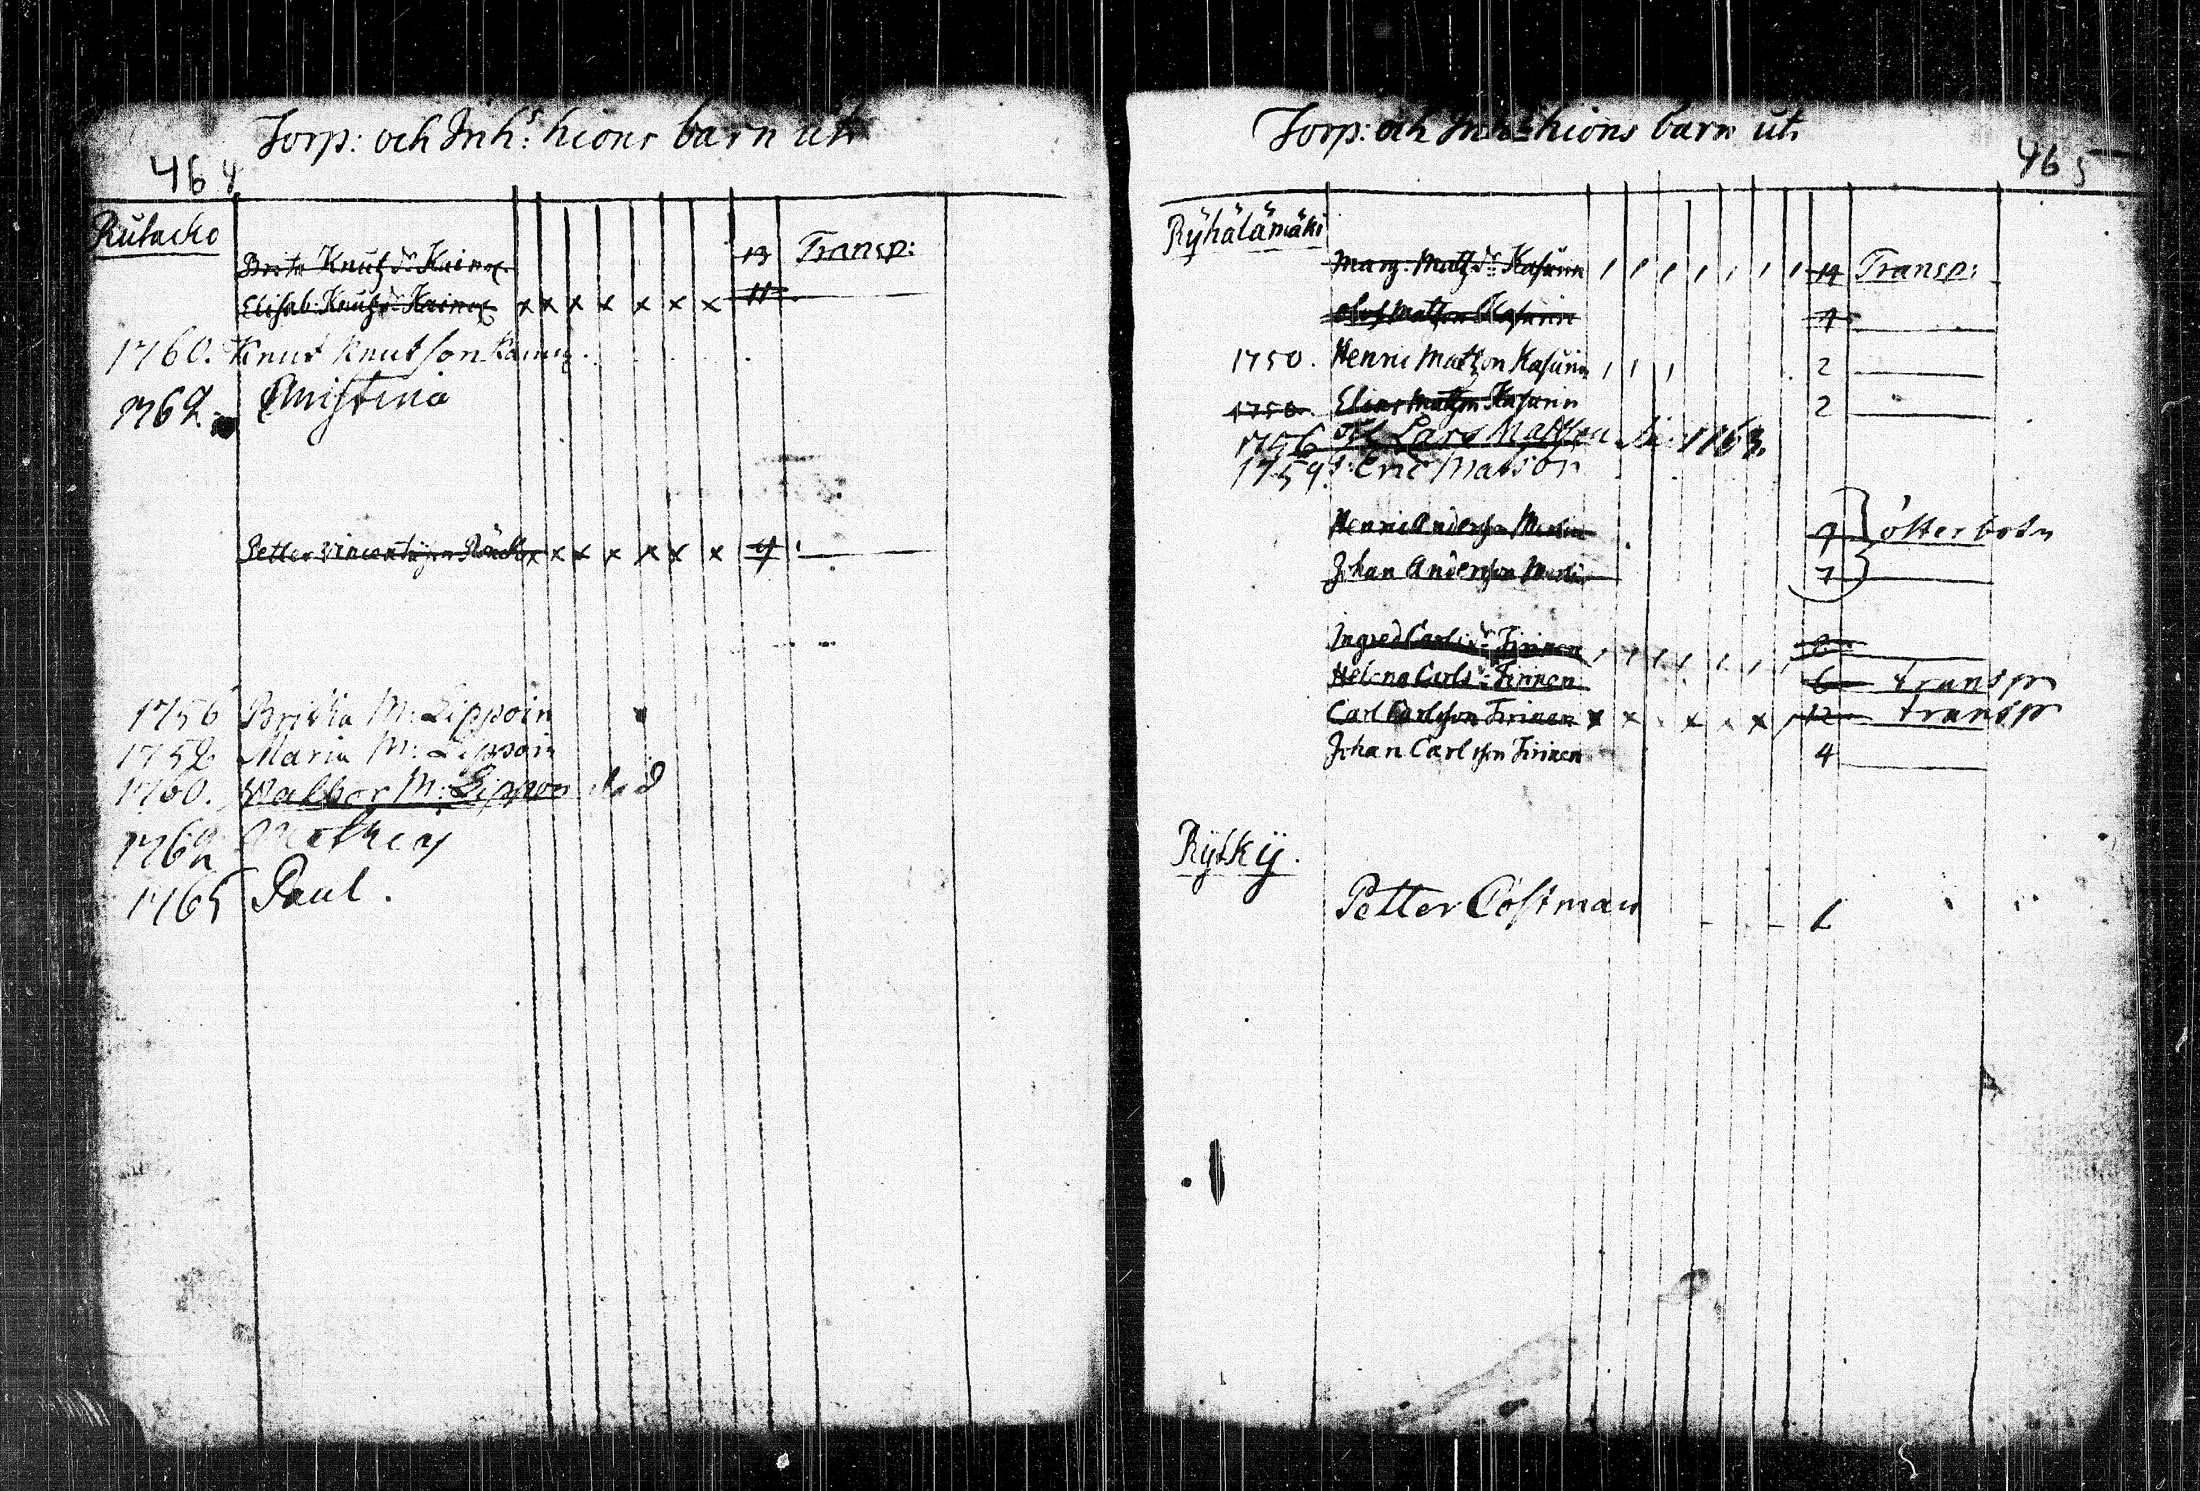 464
Torp: och Inh:s hions barn ut.
Rutacko
Brita Knutzdr Kainox 13 Transp:
Elisab. Knutzdr Kainox x x x x x x x 11
1760. Knut Knutson Kainox
1762. Christina
Petter Vincentzson x x x x x x x 9
1756 Britha M: Lippoin
1752 Maria M: Lippoin
1760. Walbor M: Lippon död
1762 Mathias
1765 Paul.
465
Torp: och Inh:s hions barn ut.
Ryhälämäki
Marg. Matzdr Kasurin 14 Transp:
Olof Matzon Kasurin
1750. Henric Matzon Kasurin 2
1750. Elias Matzon Kasurin 2
1756 Lars Mattson 1763.
1759. Eric Matson
Henric Andersson 9 österbotn
Johan Andersson 7
Ingred Carlsdr Tirinen 8
Helena Carlsdr Tirinen 6 transp
Carl Carlsson Tirinen x x x x x 12 transp
Johan Carlsson Tirinen 4
Rytky.
Petter Costman